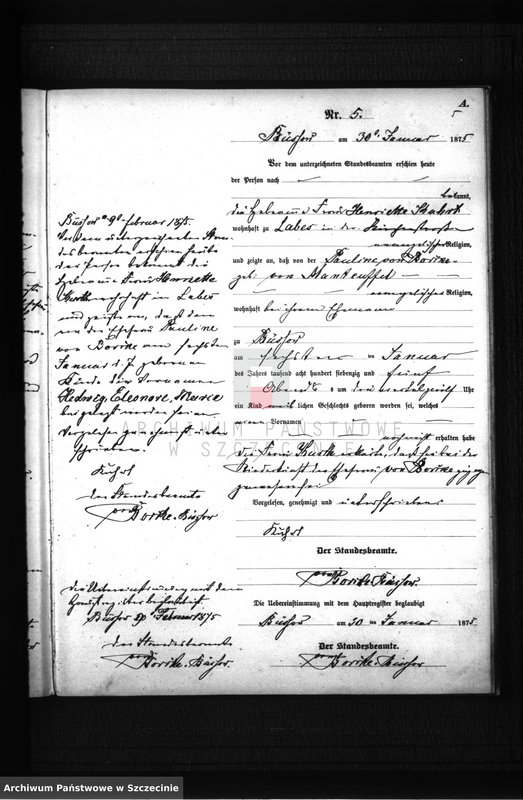 A.
5
Nr. 5.
Büssow am 30t Januar 1875
Vor dem unterzeichneten Standesbeamten erschien heute
der Person nach
bekannt,
die Hebamme Frau Henriette
wohnhaft zu Labes in der
evangelischer Religion,
und zeigte an, daß von der Pauline von Borcke
geb. von Manteuffel
evangelischer Religion,
wohnhaft bei ihrem Ehemann
zu Büssow
am sechsten ten Januar
des Jahres tausend acht hundert siebenzig und fünf
Abends um drei viertel zwölf Uhr
ein Kind weiblichen Geschlechts geboren worden sei, welches
einen Vornamen
noch nicht erhalten habe
Die Frau erklärte, daß sie bei der
Niederkunft der Ehefrau von Borcke zugegen
gewesen sei
Vorgelesen, genehmigt und unterschrieben
Der Standesbeamte.
von Borcke-Büssow
Die Uebereinstimmung mit dem Hauptregister beglaubigt
Büssow am 30 ten Januar 1875
Der Standesbeamte.
von Borcke-Büssow
Büssow 9t Februar 1875.
Vor dem unterzeichneten Stan-
desbeamten erschien heute
der Person bekannt die
Hebamme Frau Henriette
wohnhaft in Labes
und zeigte an, daß dem
von der Ehefrau Pauline
von Borcke am sechsten
Januar d. J. geborenen
Kinde die Vornamen
Hedwig, Eleonore, Marie
beigelegt worden seien
Vorgelesen genehmigt unter
schrieben.
Der Standesbeamte
von Borcke-Büssow
Die Uebereinstimmung mit dem
Hauptregister
Büssow Februar 1875
Der Standesbeamte
von Borcke-Büssow
ARCHIWUM PAŃSTWOWE
W SZCZECINIE
Archiwum Państwowe w Szczecinie